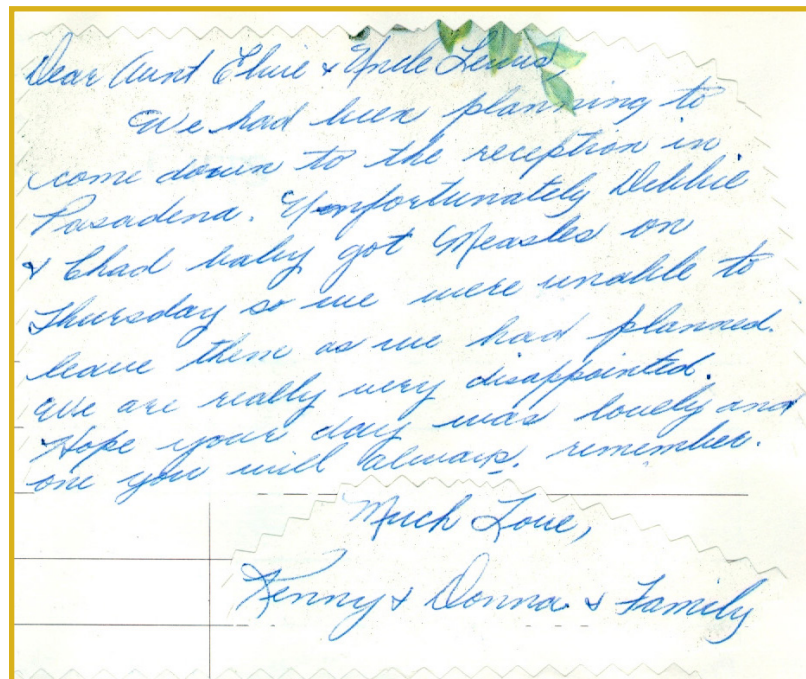 Dear Aunt Elsie & Uncle Lewis,
We had been planning to
come down to the reception in
Pasadena. Unfortunately Debbie
& Chad baby got Measles on
Thursday so we were unable to
leave them as we had planned.
We are really very disappointed.
Hope your day was lovely and
one you will always. remember.
Much Love,
Kenny & Donna & Family